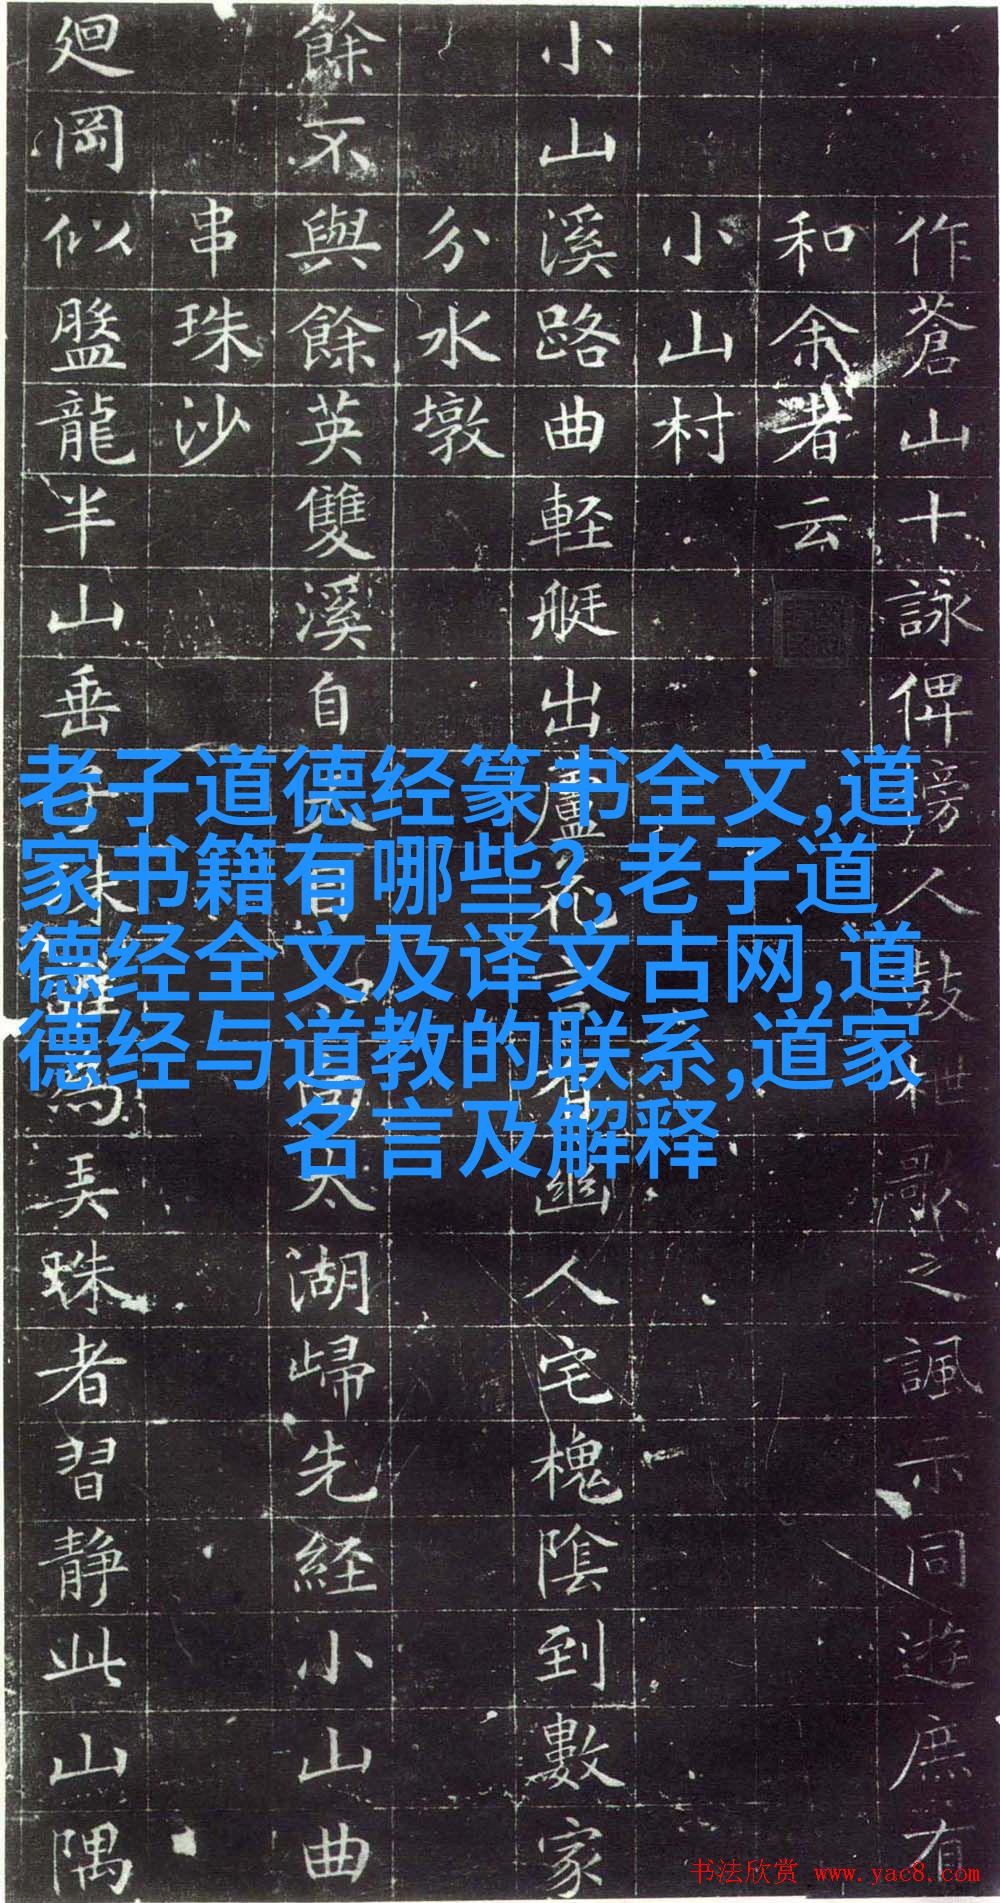 作蒼山十詠俾傍人鼓枻歌之諷示同遊庶有
和余者云
小山村
小山溪路曲輕艇出蘆花言有幽人宅槐陰到數家
分水墩
餘不與餘英雙溪自 自 向太湖歸先經小山曲
串珠沙
廻岡似盤龍半山垂 珠 為弄珠者習静此山隅
老子道德经篆书全文,道
家书籍有哪些?,老子道
德经全文及译文古网,道
德经与道教的联系,道家
名言及解释
书法欣赏 www.yac8.com